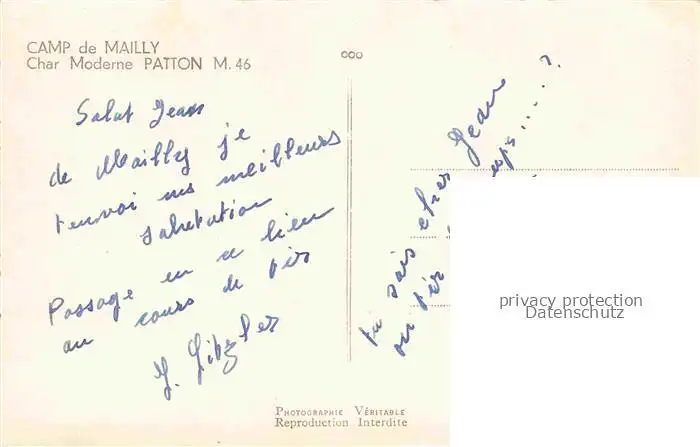 CAMP de MAILLY
Char Moderne PATTON M. 46
Salut Jean
de Mailly je
t'envoi mes meilleurs
salutation
Passage en ce lieu
au cours de tir
tu sais cher Jean
on tir
privacy protection
Datenschutz
PHOTOGRAPHIE VÉRITABLE
Reproduction Interdite